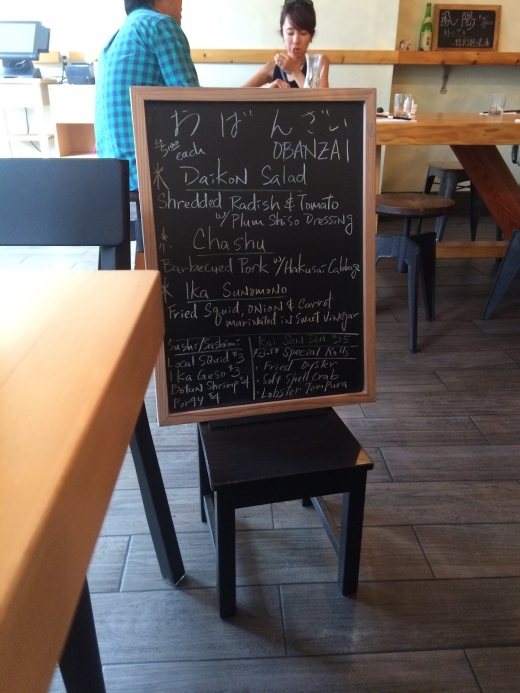 おばんざい
$5.00 each OBANZAI
* Daikon Salad
Shredded Radish & Tomato
w/ Plum Shiso Dressing
* Chashu
Barbecued Pork w/ Hakusai Cabbage
* Ika Sunomono
Fried Squid, onion & Carrot
marinated in Sweet Vinegar
Sushi/Sashimi
Local Squid $3
Ika Geso $3
Botan Shrimp $4
Porgy $4
$5
Special Rolls
· Fried Oyster
· Soft Shell Crab
· Lobster Tempura
鳳陽